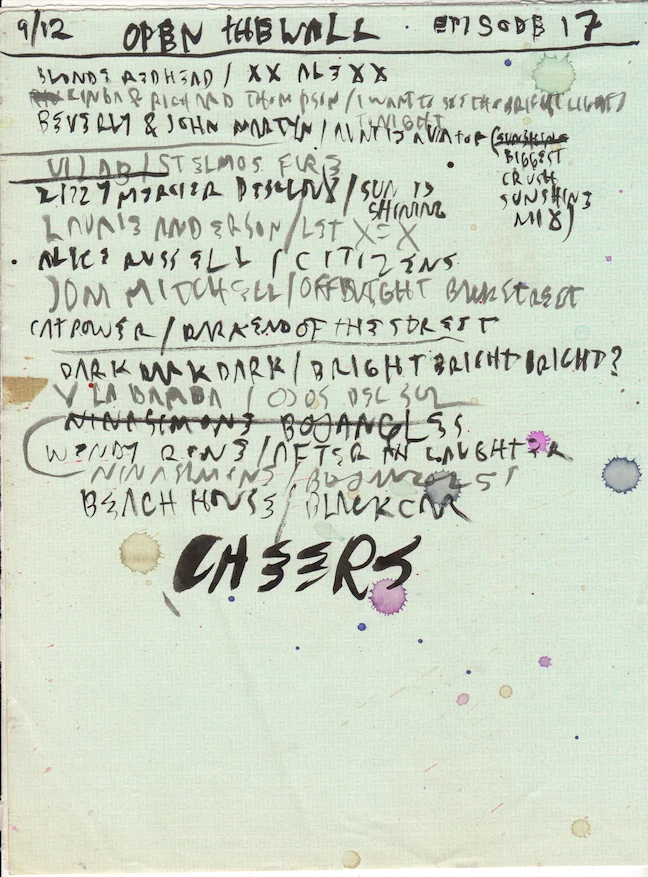 9/12 OPEN THE WALL EPISODE 17
BLONDE REDHEAD / XX ALEXX
LINDA & RICHARD THOMPSON / I WANT TO SEE THE BRIGHT LIGHTS
TONIGHT
BEVERLY & JOHN MARTYN / AUNTIE AVIATOR (SUNSHINE
BIGGEST
CRUSH
SUNSHINE
MIX)
/ ST ELMOS FIRE
LIZZY MERCIER DESCLOUX / SUN IS
SHINING
LAURIE ANDERSON / LET X=X
ALICE RUSSELL / CITIZENS
JONI MITCHELL / OFF NIGHT BACKSTREET
CAT POWER / DARK END OF THE STREET
DARK DARK DARK / BRIGHT BRIGHT BRIGHT?
Y LA BAMBA / OJOS DEL SOL
NINA SIMONE BOJANGLES
WENDY RENE / AFTER LAUGHTER
NINA SIMONE / BOJANGLES
BEACH HOUSE / BLACK CAR
CHEERS